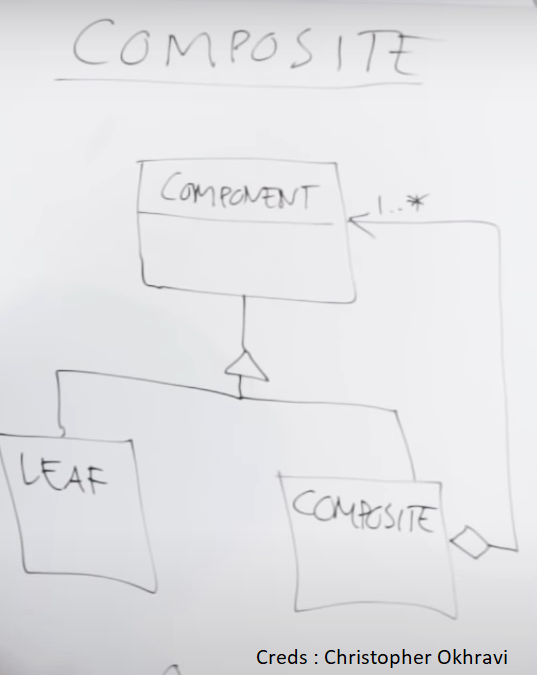 COMPOSITE
COMPONENT
1..*
LEAF
COMPOSITE
Creds : Christopher Okhravi